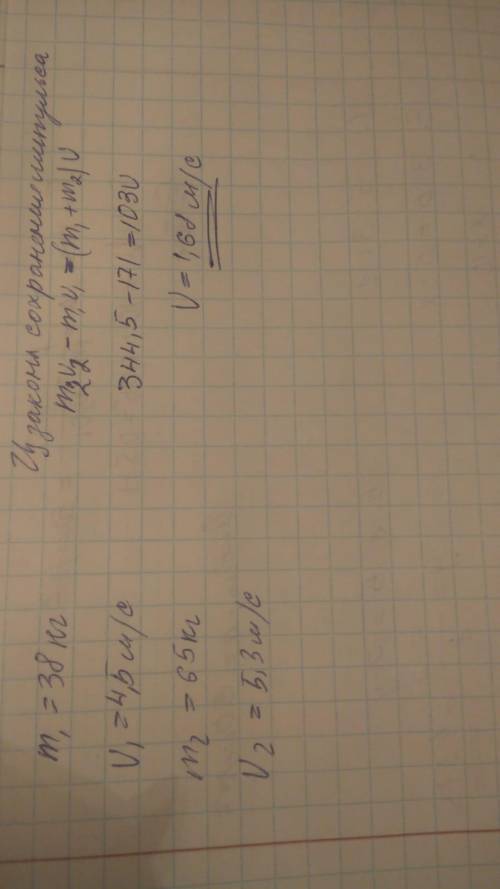 m₁ = 38 кг
V₁ = 4,5 м/с
m₂ = 65 кг
V₂ = 5,3 м/с
Из закона сохранения импульса
m₂V₂ - m₁V₁ = (m₁ + m₂)V
344,5 - 171 = 103V
V = 1,68 м/с